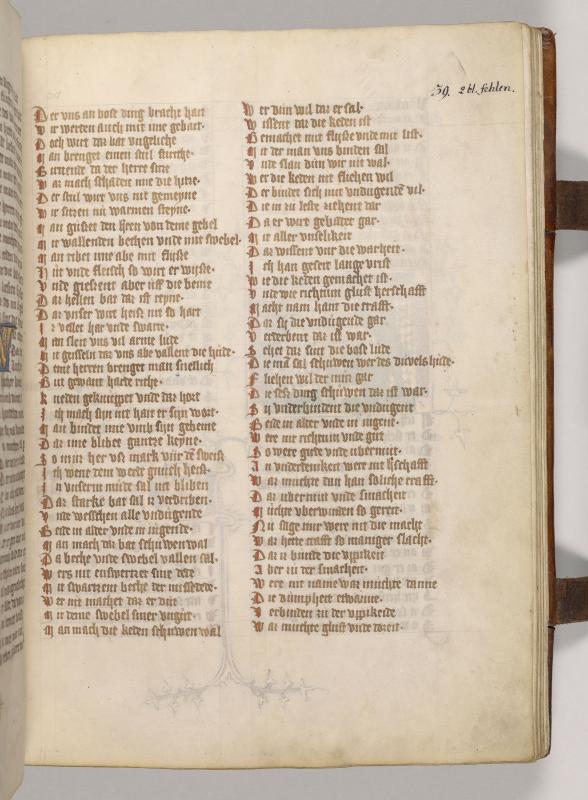 39. 2 bl. fehlen.
Der vns an bose ding bracht hait
Wir werden auch mit ime gebait
Doch wirt daz bat vngeliche
Man brenget einen stul
da der herre sine
Waz mach schaden ime die hitze
Der stul wirt vns nit gemeyne
Wir sitzen nit warmen steyne
Man giuset den hern von deme gebel
Mit wallenden bechen vnde mit swebel
Man ribet ime abe mit flijse
Hut vnde fleisch so wirt er wijse
Vnde griesent aber uff die beine
Daz heisen bat daz ist reyne
Daz vnser wirt heist mit so hart
Ir voller har vnde swarte
Man sleit vns vil arme lude
Mit geisseln daz vns abe vallent die hude
Deme herren brenget man snellich
Ein gewant harte riche
Keden geknuppet vnde daz hort
Ich mach sijn nit han er sijn wort
Man bindet ime vmb sijn gebeine
Daz ime blibet gantze keyne
So mir her
Ich wene dem wede
In vnserm mude sal nit bliben
Daz starke bat sal iz verdriben
Vnde wesschen alle vndugende
Beide in alder vnde in iugende
Man mach daz bat schuwen wal
Da beche vnde swebel vallen sal
Wers nit enswertzet sine dede
Mit swartzem beche der missedede
Wer nit machet daz er
Mit deme swebel siner vnzijt
Man mach die keden schuwen wal
Wer dun wil daz er sal
Wissent daz die keden ist
Gemachet mit flijse vnde mit list
Mit der man vns binden sal
Vnde slan dun wir nit wal
Wer die keden nit fliehen wil
Der bindet sich mit vndugende vil
Die in zu leste ziehent dar
Da er wirt gebadet gar
Mit aller vnselikeit
Daz wissent vur die warheit
Ich han geseit lange vrist
Wie die keden gemachet ist
Vnde wie richtum glust herschafft
Macht nam hant die crafft
Daz sij die vndugende gar
Verderbent daz ist war
Sehet daz sint die bose lude
Die man sal schuwen wer des duvels hude
Fliehen wil der min gar
Die sese ding schuwen daz ist war
Sij vnderbindent die vndugent
Beide in alder vnde in iugent
Were nit richtum vnde gut
So were gude vnde vbermut
In vndertenikeit were nit hschafft
Waz muchte dan han soliche crafft
Daz vbermut vnde smacheit
Muchte vberwinden so gereit
Nu sage mir were nit die macht
Waz hette crafft so maniger slacht
Daz iz binde die vppikeit
Aber zu der smacheit
Were nit name waz muchte danne
Die dumpheit etwanne
Verbinden zu der vppikeide
Waz muchte glust vnde doreit